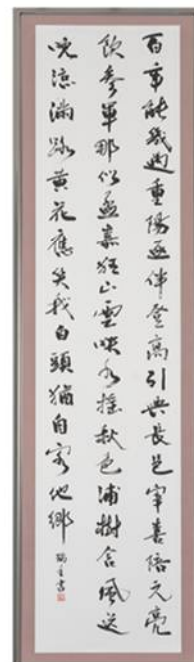 百年能幾遇重陽逐伴登高引興長邑宰喜陪元亮
飲參軍那似孟嘉狂山雲映水搖秋色浦樹含風送
晚涼滿路黃花應笑我白頭猶自客他鄉